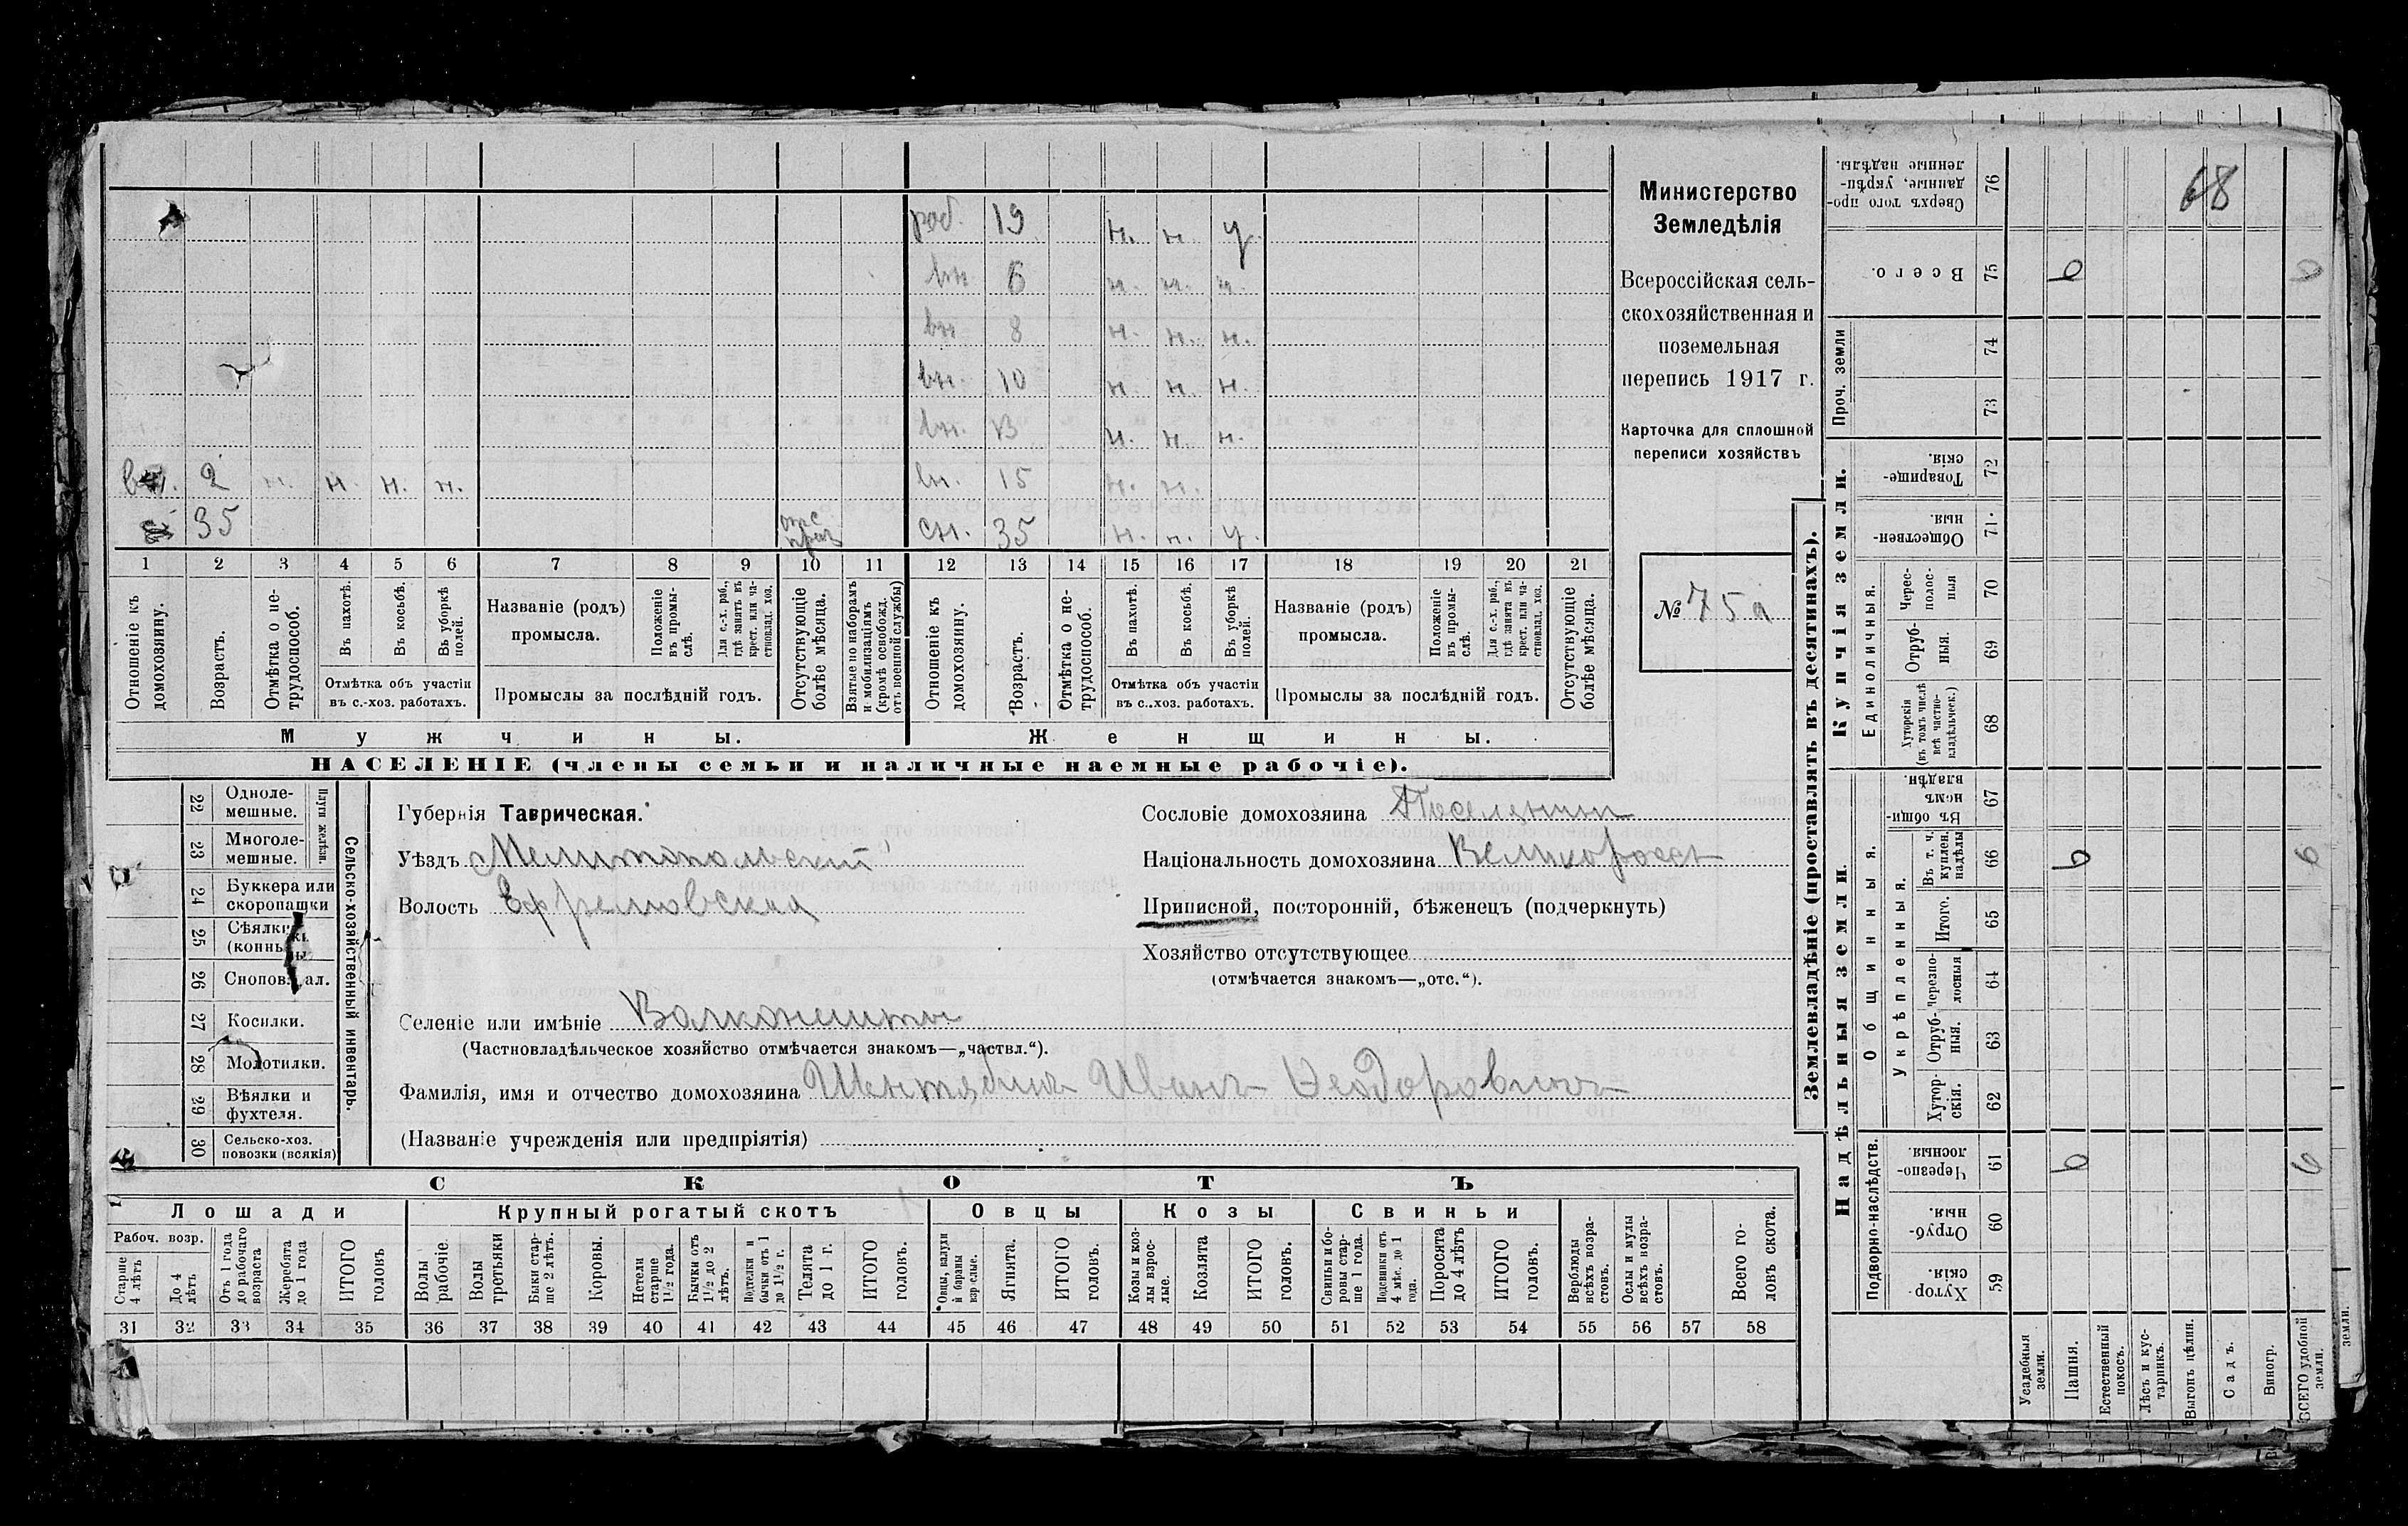 раб. 19 н. н. у.
вн 6 н. н. н.
вн 8 н. н. н.
вн. 10 н. н. н.
вн. н. н. н.
вн. 2 н. н. н. н. вн. 15 н. н.
35 отс сн. 35 н. н. у.
1 2 3 4 5 6 7 8 9 10 11 12 13 14 15 16 17 18 19 20 21
Отношеніе къ домохозяину.
Возрастъ.
Отмѣтка о не-
трудоспособ.
Въ пахотѣ.
Въ косьбѣ.
Въ уборкѣ полей.
Отмѣтка объ участіи
въ с.-хоз. работахъ.
Названіе (родъ)
промысла.
Положеніе
въ промы-
слѣ.
Для с.-х. раб.,
гдѣ занятъ въ
крест. или ча-
стновлад. хоз.
Промыслы за послѣдній годъ.
Отсутствующіе
болѣе мѣсяца.
Взятые по наборамъ
и мобилизаціямъ
(кромѣ освобожд.
отъ военной службы)
Отношеніе къ
домохозяину.
Возрастъ.
Отмѣтка о не-
трудоспособ.
Въ пахотѣ.
Въ косьбѣ.
Въ уборкѣ
полей.
Отмѣтка объ участіи
въ с.-хоз. работахъ.
Названіе (родъ)
промысла.
Положеніе
въ промы-
слѣ.
Для с.-х. раб.,
гдѣ занята въ
крест. или ча-
стновлад. хоз.
Промыслы за послѣдній годъ.
Отсутствующіе
болѣе мѣсяца.
Мужчины. Женщины.
НАСЕЛЕНІЕ (члены семьи и наличные наемные рабочіе).
Министерство
Земледѣлія
Всероссійская сель-
скохозяйственная и
поземельная
перепись 1917 г.
Карточка для сплошной
переписи хозяйствъ
№ 75а
22 Одноле-
мешные.
23 Многоле-
мешные.
Плуги желѣзн.
24 Буккера или
скоропашки
25 Сѣялки
(конны
26 Снопов ал.
27 Косилки.
28 Молотилки.
29 Вѣялки и
фухтеля.
30 Сельско-хоз.
повозки (всякія)
Сельско-хозяйственный инвентарь.
Губернія Таврическая.
Уѣздъ Мелитопольскій
Волость Ефремовская
Селеніе или имѣніе
(Частновладѣльческое хозяйство отмѣчается знакомъ—„частвл.“).
Фамилія, имя и отчество домохозяина Иванъ Ѳеодоровичъ
(Названіе учрежденія или предпріятія)
Сословіе домохозяина Поселянин
Національность домохозяина Великороссъ
Приписной, посторонній, бѣженецъ (подчеркнуть)
Хозяйство отсутствующее
(отмѣчается знакомъ—„отс.“).
СКОТЪ
Лошади Крупный рогатый скотъ Овцы Козы Свиньи
Рабоч. возр.
Старше
4 лѣтъ
До 4
лѣтъ
Отъ 1 года
до рабочаго
возраста
Жеребята
до 1 года
ИТОГО
головъ
Волы
рабочіе.
Волы
третьяки
Быки стар-
ше 2 лѣтъ.
Коровы.
Нетели
старше
1½ года.
Бычки отъ
1½ до 2
лѣтъ.
Подтелки и
бычки отъ 1
до 1½ г.
Телята
до 1 г.
ИТОГО
головъ.
Овцы, валухи
и бараны
взрослые.
Ягнята.
ИТОГО
головъ.
Козы и коз-
лы взрос-
лые.
Козлята
ИТОГО
головъ.
Свиньи и бо-
ровы стар-
ше 1 года.
Подсвинки отъ
4 мѣс. до 1
года.
Поросята
до 4 лѣтъ
ИТОГО
головъ.
Верблюды
всѣхъ возра-
стовъ.
Ослы и мулы
всѣхъ возра-
стовъ.
Всего го-
ловъ скота.
31 32 33 34 35 36 37 38 39 40 41 42 43 44 45 46 47 48 49 50 51 52 53 54 55 56 57 58
Землевладѣніе (проставлять въ десятинахъ).
Купчія земли.
Надѣльныя земли.
68
Сверхъ того про-
данные, укрѣп-
ленные надѣлы.
76
Всего. 75 6 6
Проч. земли
74
73
Товарище-
скія. 72
Обществен-
ныя. 71
Единоличныя.
Черес-
полос-
ныя 70
Отруб-
ныя. 69
Хуторскія
(въ томъ числѣ
всѣ частно-
владѣльческ.) 68
Общинныя.
Въ общин-
номъ
владѣн. 67
Въ т. ч.
куплен.
надѣлы 66 6 6
Укрѣпленныя.
Итого. 65
Черезпо-
лосныя 64
Отруб-
ныя. 63
Хутор-
скія. 62
Подворно-наслѣдств.
Черезпо-
лосныя. 61 6 6
Отруб-
ныя. 60
Хутор-
скія. 59
Усадебныя
земли.
Пашня.
Естественный
покосъ.
Лѣсъ и кус-
тарникъ.
Выгонъ цѣлин.
Садъ.
Виногр.
ВСЕГО удобной
земли.
земли.